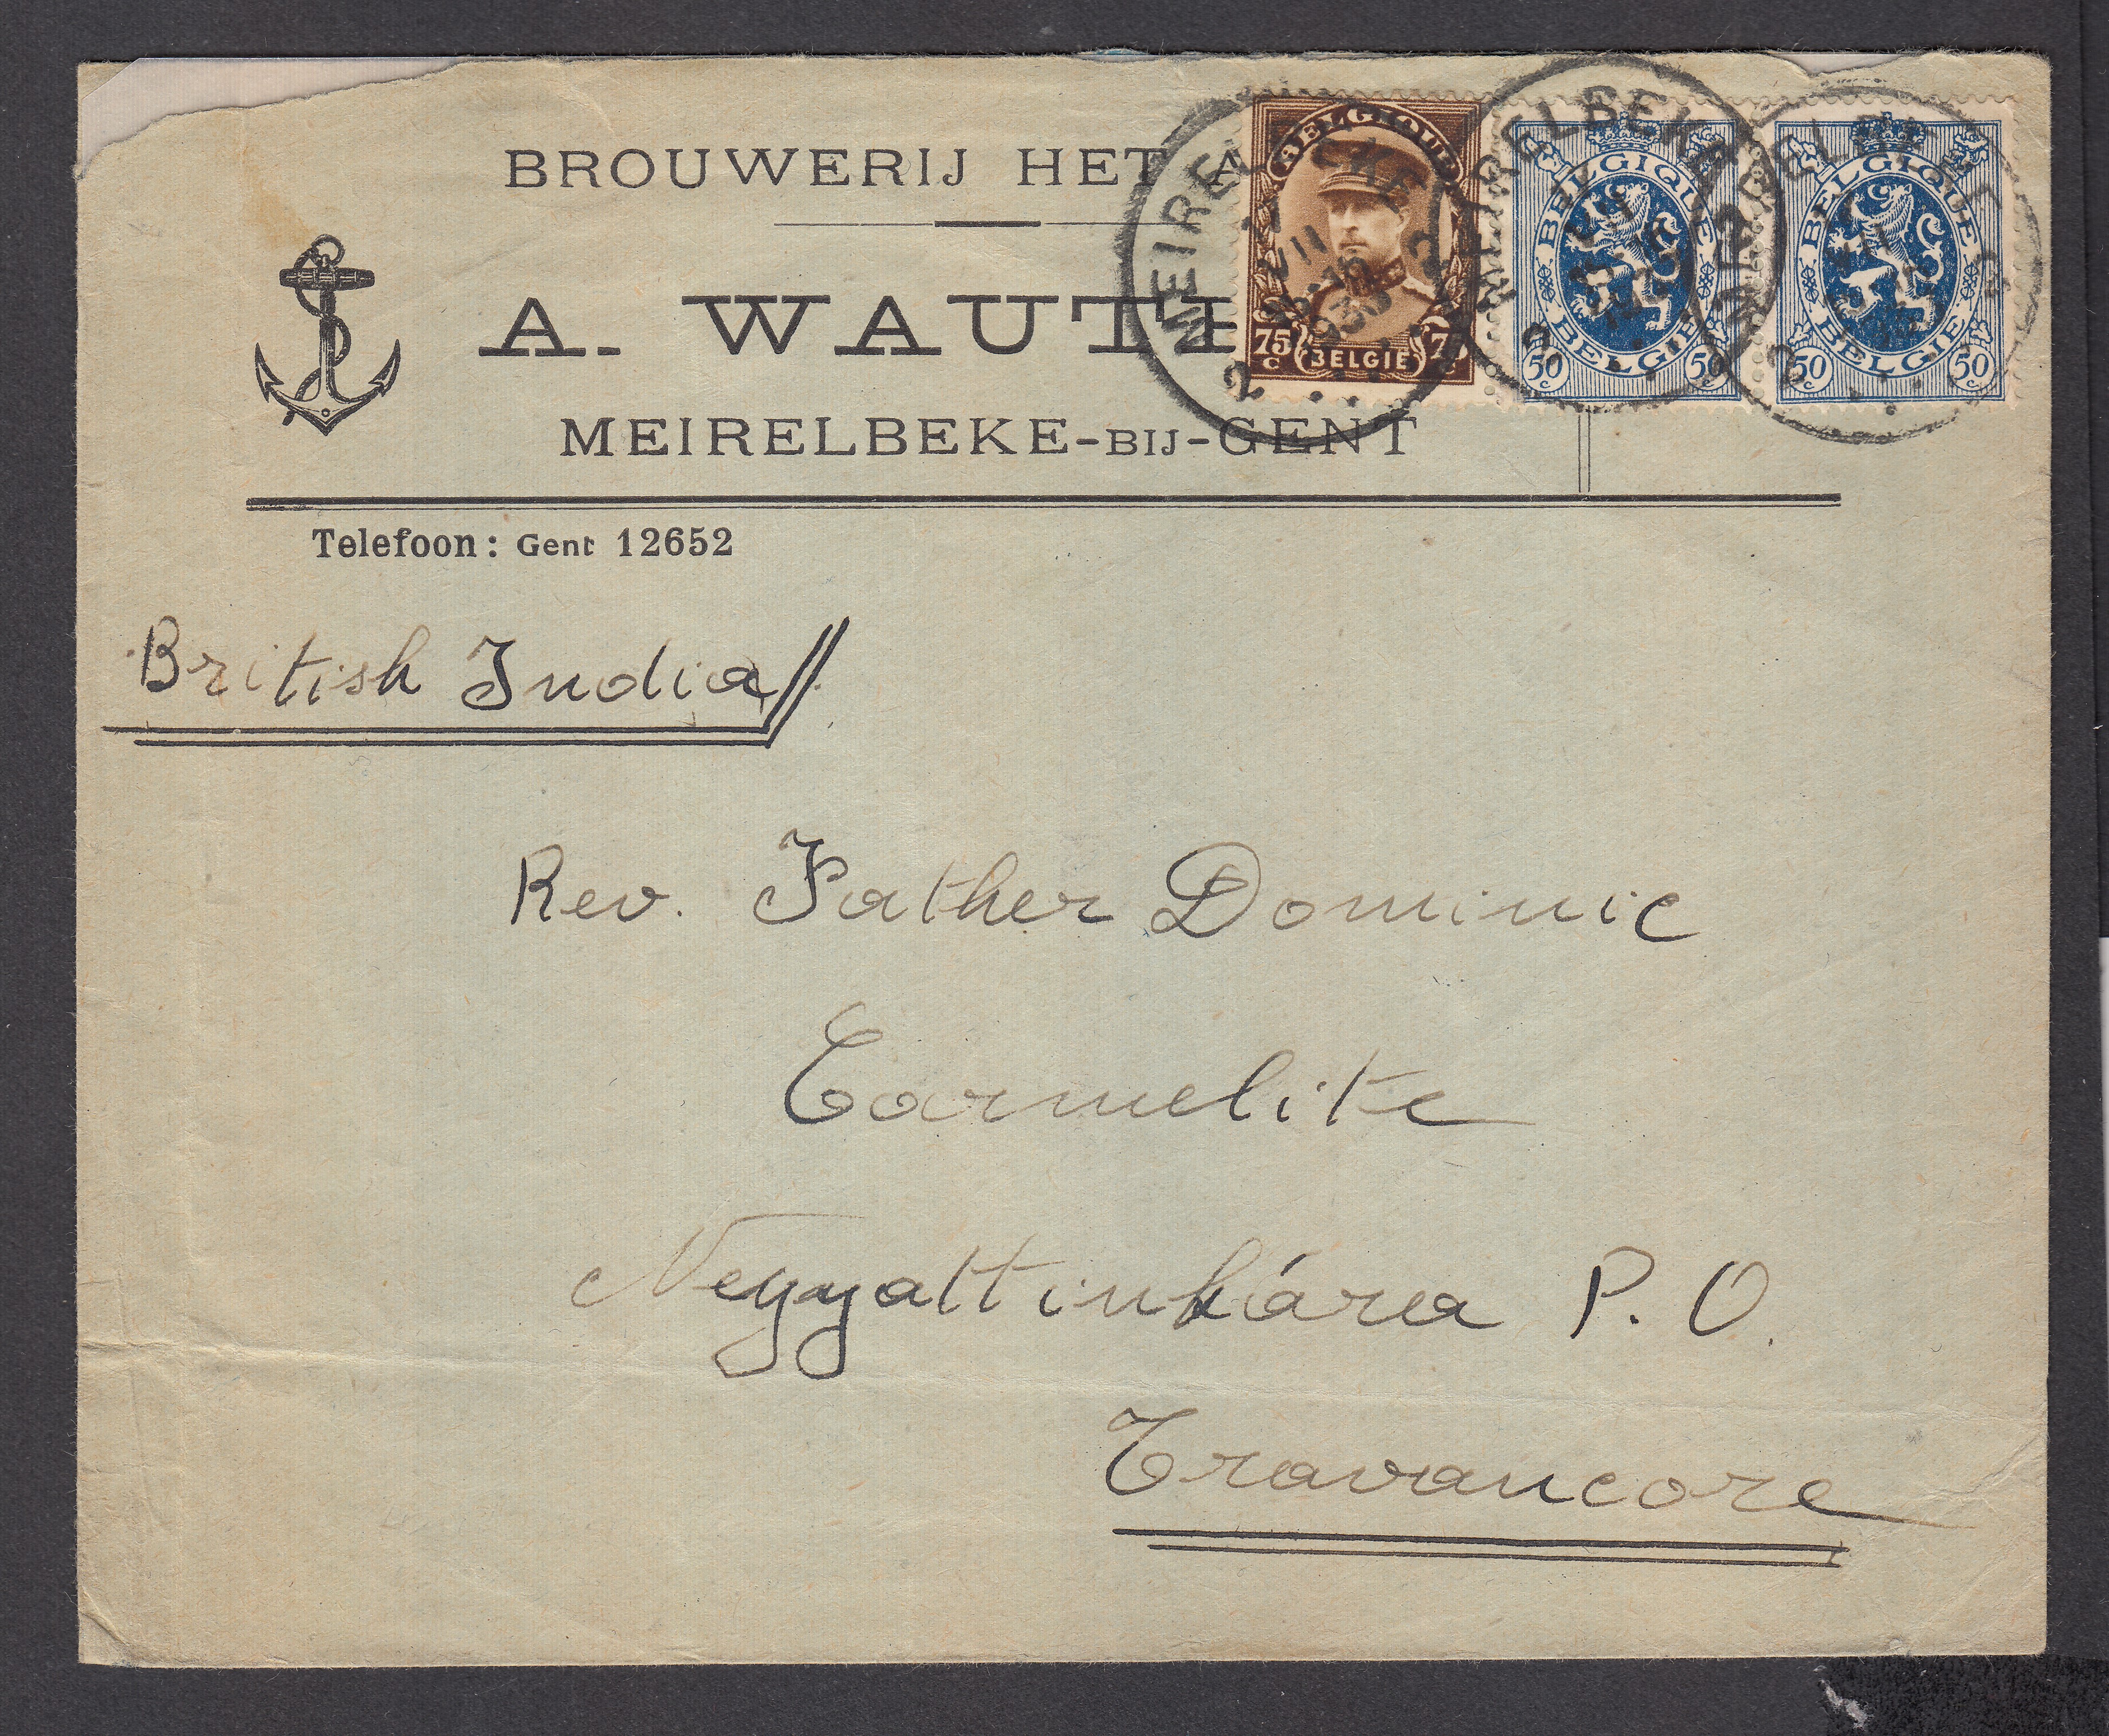 BROUWERIJ HET
A. WAUT
MEIRELBEKE-BIJ-GENT
Telefoon: Gent 12652
BELGIQUE
75 c BELGIE
BELGIQUE
BELGIE
50 c 50 c
BELGIQUE
BELGIE
50 c 50 c
MEIRELBEKE
British India
Rev. Father Dominic
Carmelite
Neyyattinkára P. O.
Travancore